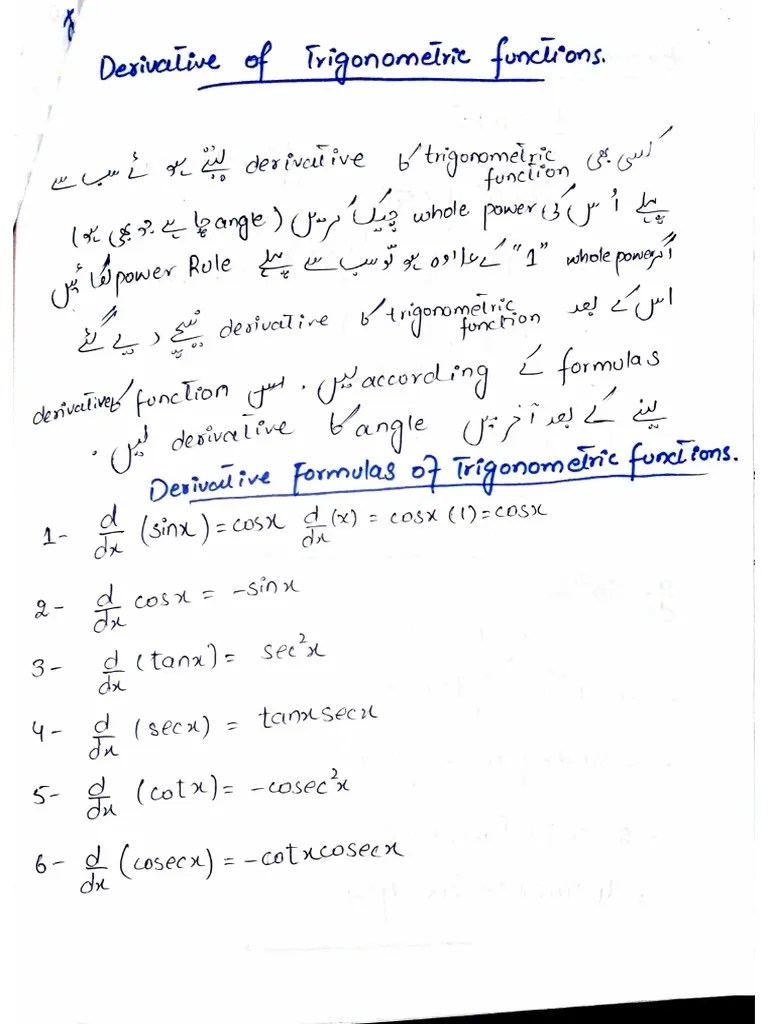 Derivative of Trigonometric functions.
کسی بھی trigonometric function کا derivative لیتے ہوئے سب سے
پہلے اُس کی whole power چیک کریں (angle چاہے جو بھی ہو)
اگر whole power "1" کے علاوہ ہو تو سب سے پہلے power Rule لگائیں
اس کے بعد trigonometric function کا derivative نیچے دیے گئے
formulas کے according لیں۔ اس function کا derivative
لینے کے بعد آخر میں angle کا derivative لیں۔
Derivative Formulas of Trigonometric functions.
1- d/dx (sinx) = cosx d/dx (x) = cosx (1) = cosx
2- d/dx cosx = -sinx
3- d/dx (tanx) = sec²x
4- d/dx (secx) = tanxsecx
5- d/dx (cotx) = -cosec²x
6- d/dx (cosecx) = -cotxcosecx